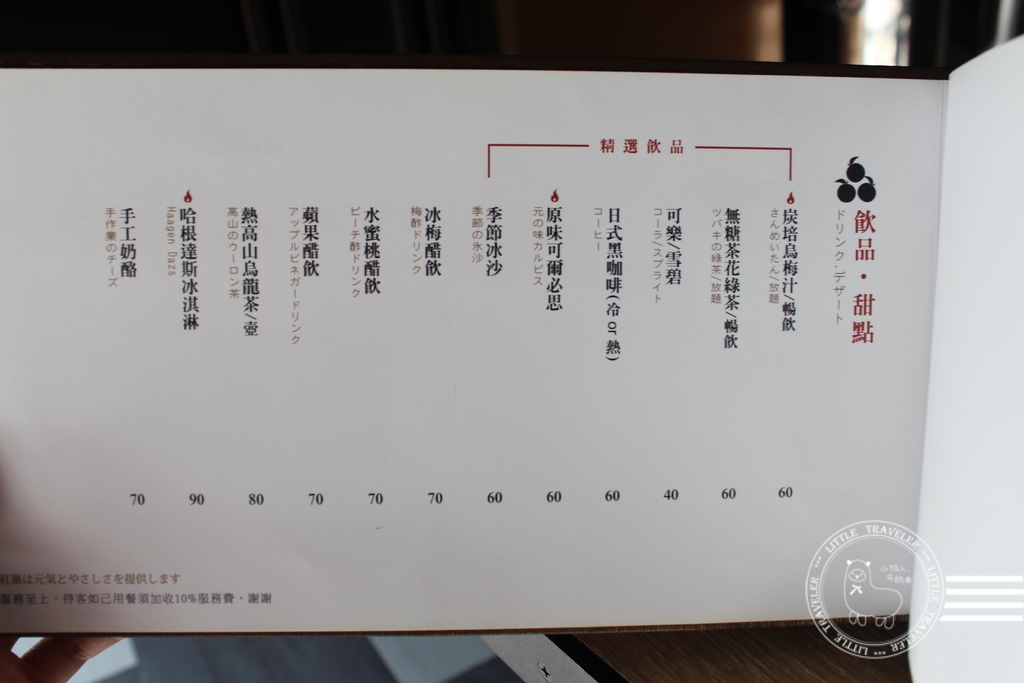 飲品・甜點
ドリンク・デザート
精選飲品
炭培烏梅汁/暢飲
さんめいたん/放題
60
無糖茶花綠茶/暢飲
ツバキの緑茶/放題
60
可樂/雪碧
コーラ/スプライト
40
日式黑咖啡(冷 or 熱)
コーヒー
60
原味可爾必思
元の味カルピス
60
季節冰沙
季節の氷沙
60
冰梅醋飲
梅酢ドリンク
70
水蜜桃醋飲
ピーチ酢ドリンク
70
蘋果醋飲
アップルビネガードリンク
70
熱高山烏龍茶/壺
高山のウーロン茶
80
哈根達斯冰淇淋
Haagen Dazs
90
手工奶酪
手作業のチーズ
70
紅葉は元気とやさしさを提供します
服務至上，待客如己用餐須加收10%服務費，謝謝
LITTLE TRAVELER
LITTLE TRAVELER
LITTLE TRAVELER
小旅人